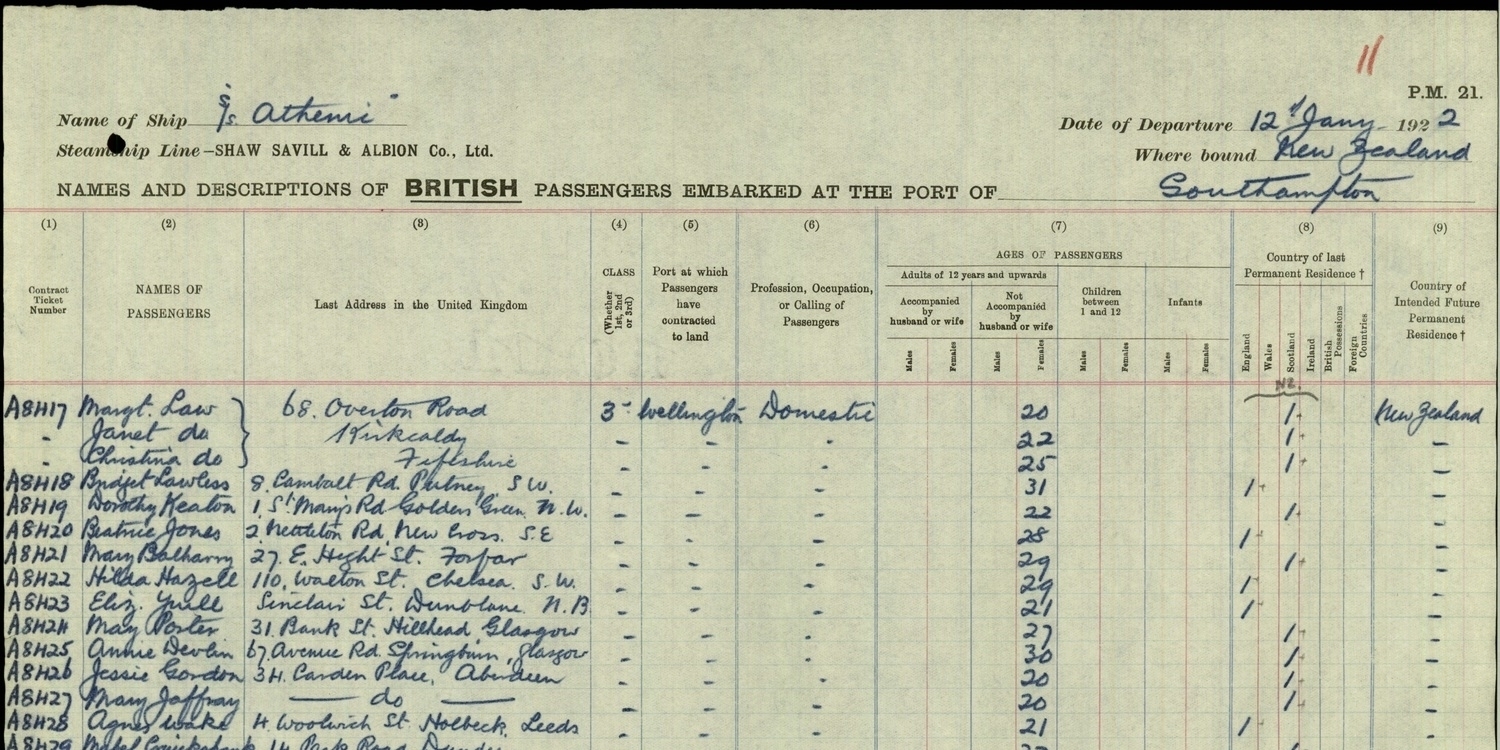 11
P.M. 21.
Name of Ship s/s Athenic
Date of Departure 12 Jany 1922
Steamship Line—SHAW SAVILL & ALBION Co., Ltd.
Where bound New Zealand
NAMES AND DESCRIPTIONS OF BRITISH PASSENGERS EMBARKED AT THE PORT OF Southampton
(1) (2) (3) (4) (5) (6) (7) (8) (9)
Contract Ticket Number
NAMES OF PASSENGERS
Last Address in the United Kingdom
CLASS (Whether 1st, 2nd or 3rd)
Port at which Passengers have contracted to land
Profession, Occupation, or Calling of Passengers
AGES OF PASSENGERS
Adults of 12 years and upwards
Accompanied by husband or wife
Not Accompanied by husband or wife
Children between 1 and 12
Infants
Males Females Males Females Males Females Males Females
Country of last Permanent Residence †
England Wales Scotland Ireland British Possessions Foreign Countries
Country of Intended Future Permanent Residence †
NZ.
A8H17 Margt. Law 68. Overton Road 3 Wellington Domestic 20 1 New Zealand
- Janet do Kirkcaldy - - - 22 1 -
- Christina do Fifeshire - - - 25 1 -
A8H18 Bridget Lawless 8. Cambalt Rd. Putney S.W. - - - 31 1 -
A8H19 Dorothy Keaton 1. St. Mary's Rd Golders Green. N.W. - - - 22 1 -
A8H20 Beatrice Jones 2. Nettleton Rd, New Cross. S.E - - - 28 1 -
A8H21 Mary Balharry 27. E. Hight St. Forfar - - - 29 1 -
A8H22 Hilda Hazell 110. Walton St. Chelsea. S.W. - - - 29 1 -
A8H23 Eliz. Yuill Sinclair St. Dunblane. N.B. - - - 21 1 -
A8H24 May Porter 31. Bank St. Hillhead Glasgow - - - 27 1 -
A8H25 Annie Devlin 67. Avenue Rd. Springburn, Glasgow - - - 30 1 -
A8H26 Jessie Gordon 34. Carden Place, Aberdeen - - - 20 1 -
A8H27 Mary Jaffray — do — - - - 20 1 -
A8H28 Agnes Wake 4. Woolwich St. Holbeck. Leeds - - - 21 1 -
A8H29 Mabel Cruickshank 14 Park Road, Dundee